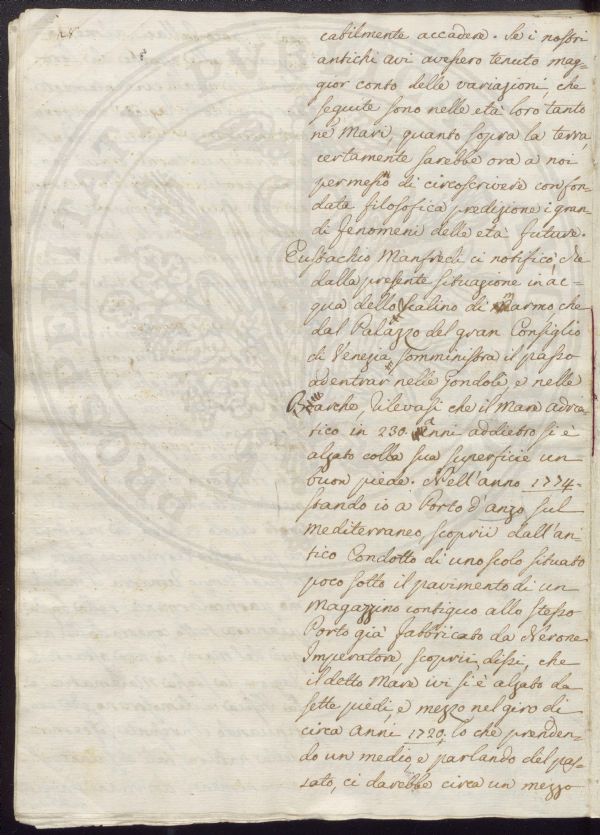 cabilmente accadere. Se i nostri
antichi avi avessero tenuto mag=
gior conto delle variazioni, che
seguite sono nelle età loro tanto
ne Mari, quanto sopra la terra,
certamente sarebbe ora a noi
permesso di circoscrivere con fon=
data filosofica predizione i gran=
di fenomeni delle età future.
Eustachio Manfredi ci notificò, che
dalla presente situazione in ac=
qua dello scalino di marmo, che
dal Palazzo del gran Consiglio
di Venezia somministra il passo
ad entrar nelle Gondole, e nelle
Barche, rilevasi che il Mare adria=
tico in 230. anni addietro si è
alzato colla sua superficie un
buon piede. Nell'anno 1774.
stando io a Porto d'anzo sul
Mediterraneo scoprii dall'an=
tico Condotto di uno scolo situato
poco sotto il pavimento di un
Magazzino contiguo allo stesso
Porto già fabbricato da Nerone
Imperatore, scoprii, dissi, che
il detto Mare ivi si è alzato da
sette piedi, e mezzo nel giro di
circa anni 1720, lo che prenden=
do un medio, e parlando del pas=
sato, ci darebbe circa un mezzo